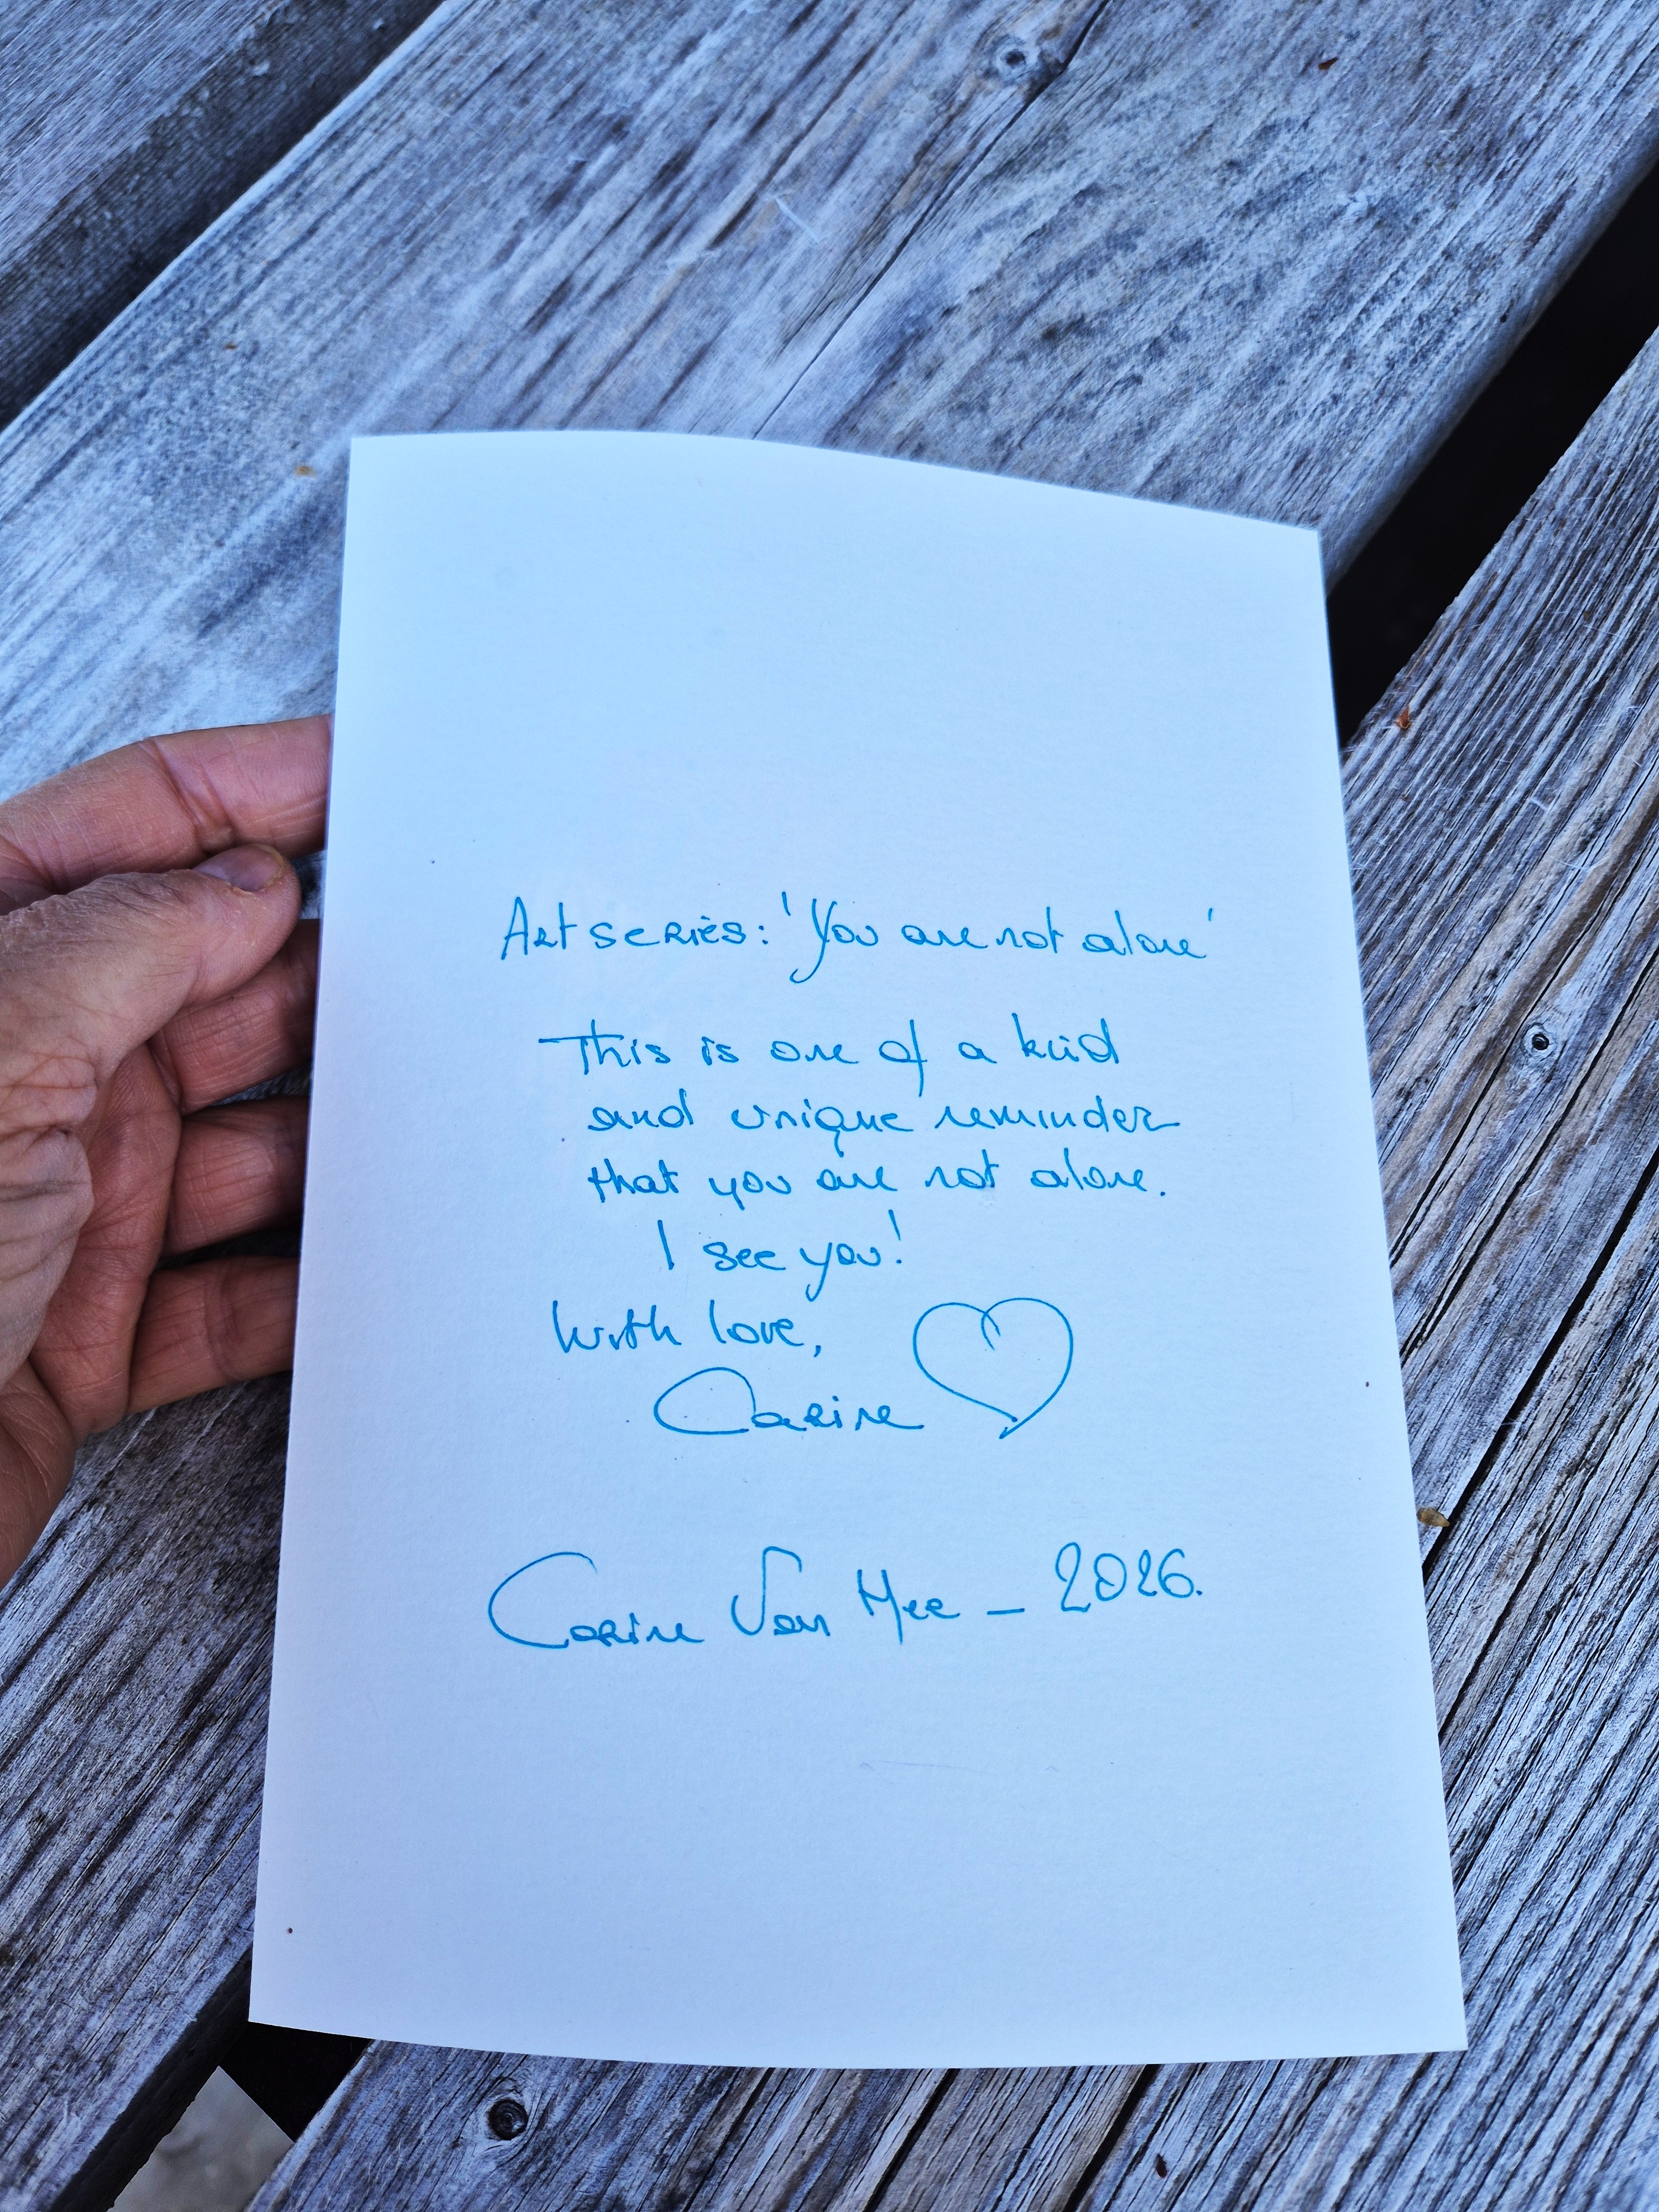 Art series: 'You are not alone'
This is one of a kind
and unique reminder
that you are not alone.
I see you!
With love,
Carine
Carine Van Hee - 2026.